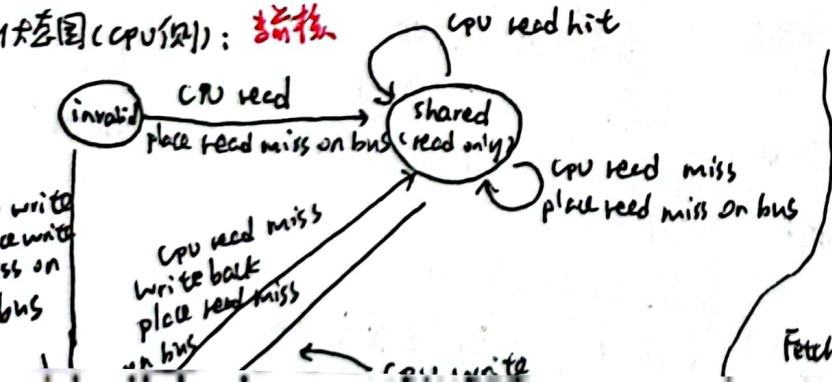 状态图(CPU侧): 当前核
CPU read hit
CPU read
invalid
place read miss on bus
shared
(read only)
CPU read miss
place read miss on bus
write
write
ss on
bus
CPU read miss
write back
place read miss
on bus
CPU write
Fetch